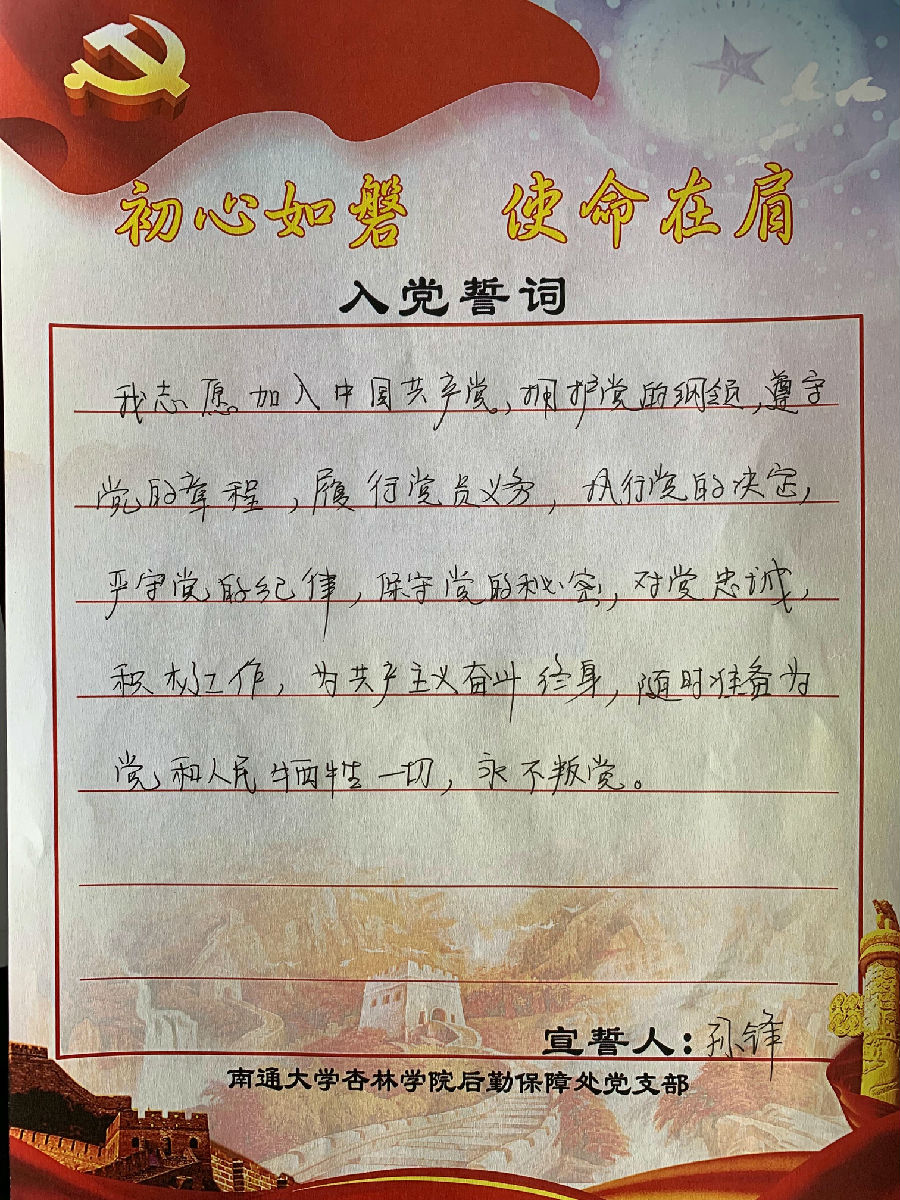 初心如磐 使命在肩
入党誓词
我志愿加入中国共产党,拥护党的纲领,遵守
党的章程,履行党员义务,执行党的决定,
严守党的纪律,保守党的秘密,对党忠诚,
积极工作,为共产主义奋斗终身,随时准备为
党和人民牺牲一切,永不叛党。
宣誓人:孙锋
南通大学杏林学院后勤保障处党支部